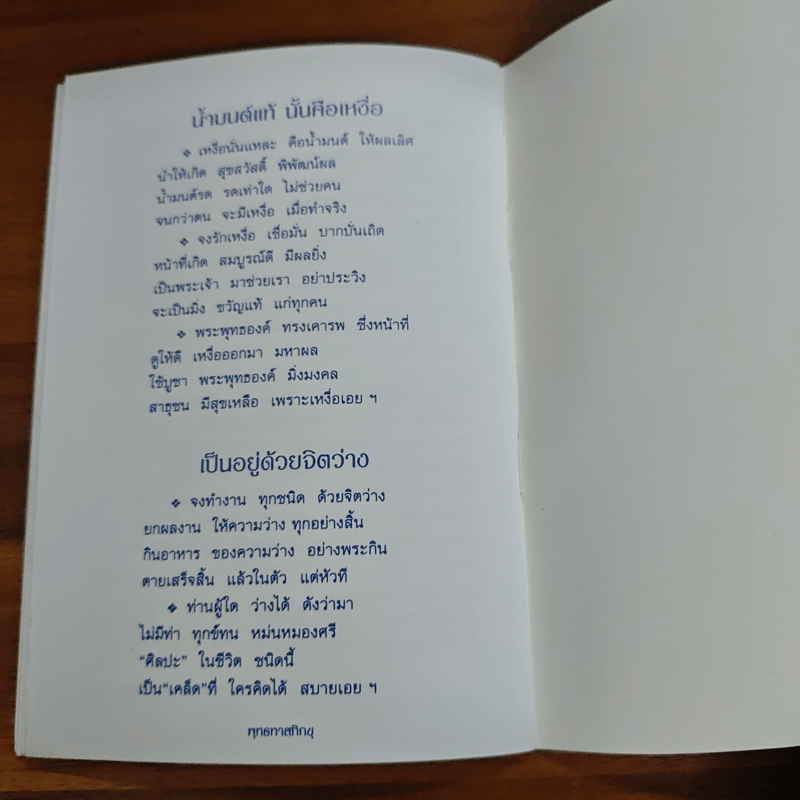 น้ำมนต์แท้ นั้นคือเหงื่อ
❖ เหงื่อนั่นแหละ คือน้ำมนต์ ให้ผลเลิศ
นำให้เกิด สุขสวัสดิ์ พิพัฒน์ผล
น้ำมนต์รด รดเท่าใด ไม่ช่วยคน
จนกว่าตน จะมีเหงื่อ เมื่อทำจริง
❖ จงรักเหงื่อ เชื่อมั่น บากบั่นเถิด
หน้าที่เกิด สมบูรณ์ดี มีผลยิ่ง
เป็นพระเจ้า มาช่วยเรา อย่าประวิง
จะเป็นมิ่ง ขวัญแท้ แก่ทุกคน
❖ พระพุทธองค์ ทรงเคารพ ซึ่งหน้าที่
ดูให้ดี เหงื่อออกมา มหาผล
ใช้บูชา พระพุทธองค์ มิ่งมงคล
สาธุชน มีสุขเหลือ เพราะเหงื่อเอย ฯ
เป็นอยู่ด้วยจิตว่าง
❖ จงทำงาน ทุกชนิด ด้วยจิตว่าง
ยกผลงาน ให้ความว่าง ทุกอย่างสิ้น
กินอาหาร ของความว่าง อย่างพระกิน
ตายเสร็จสิ้น แล้วในตัว แต่หัวที
❖ ท่านผู้ใด ว่างได้ ดังว่ามา
ไม่มีท่า ทุกข์ทน หม่นหมองศรี
“ศิลปะ” ในชีวิต ชนิดนี้
เป็น“เคล็ด”ที่ ใครคิดได้ สบายเอย ฯ
พุทธทาสภิกขุ